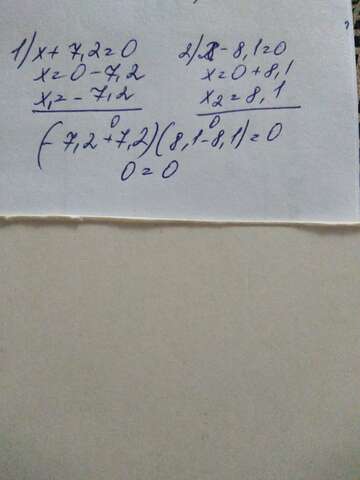 1) x + 7,2 = 0
x = 0 - 7,2
x₁ = - 7,2
2) x - 8,1 = 0
x = 0 + 8,1
x₂ = 8,1
0 0
(- 7,2 + 7,2)(8,1 - 8,1) = 0
0 = 0